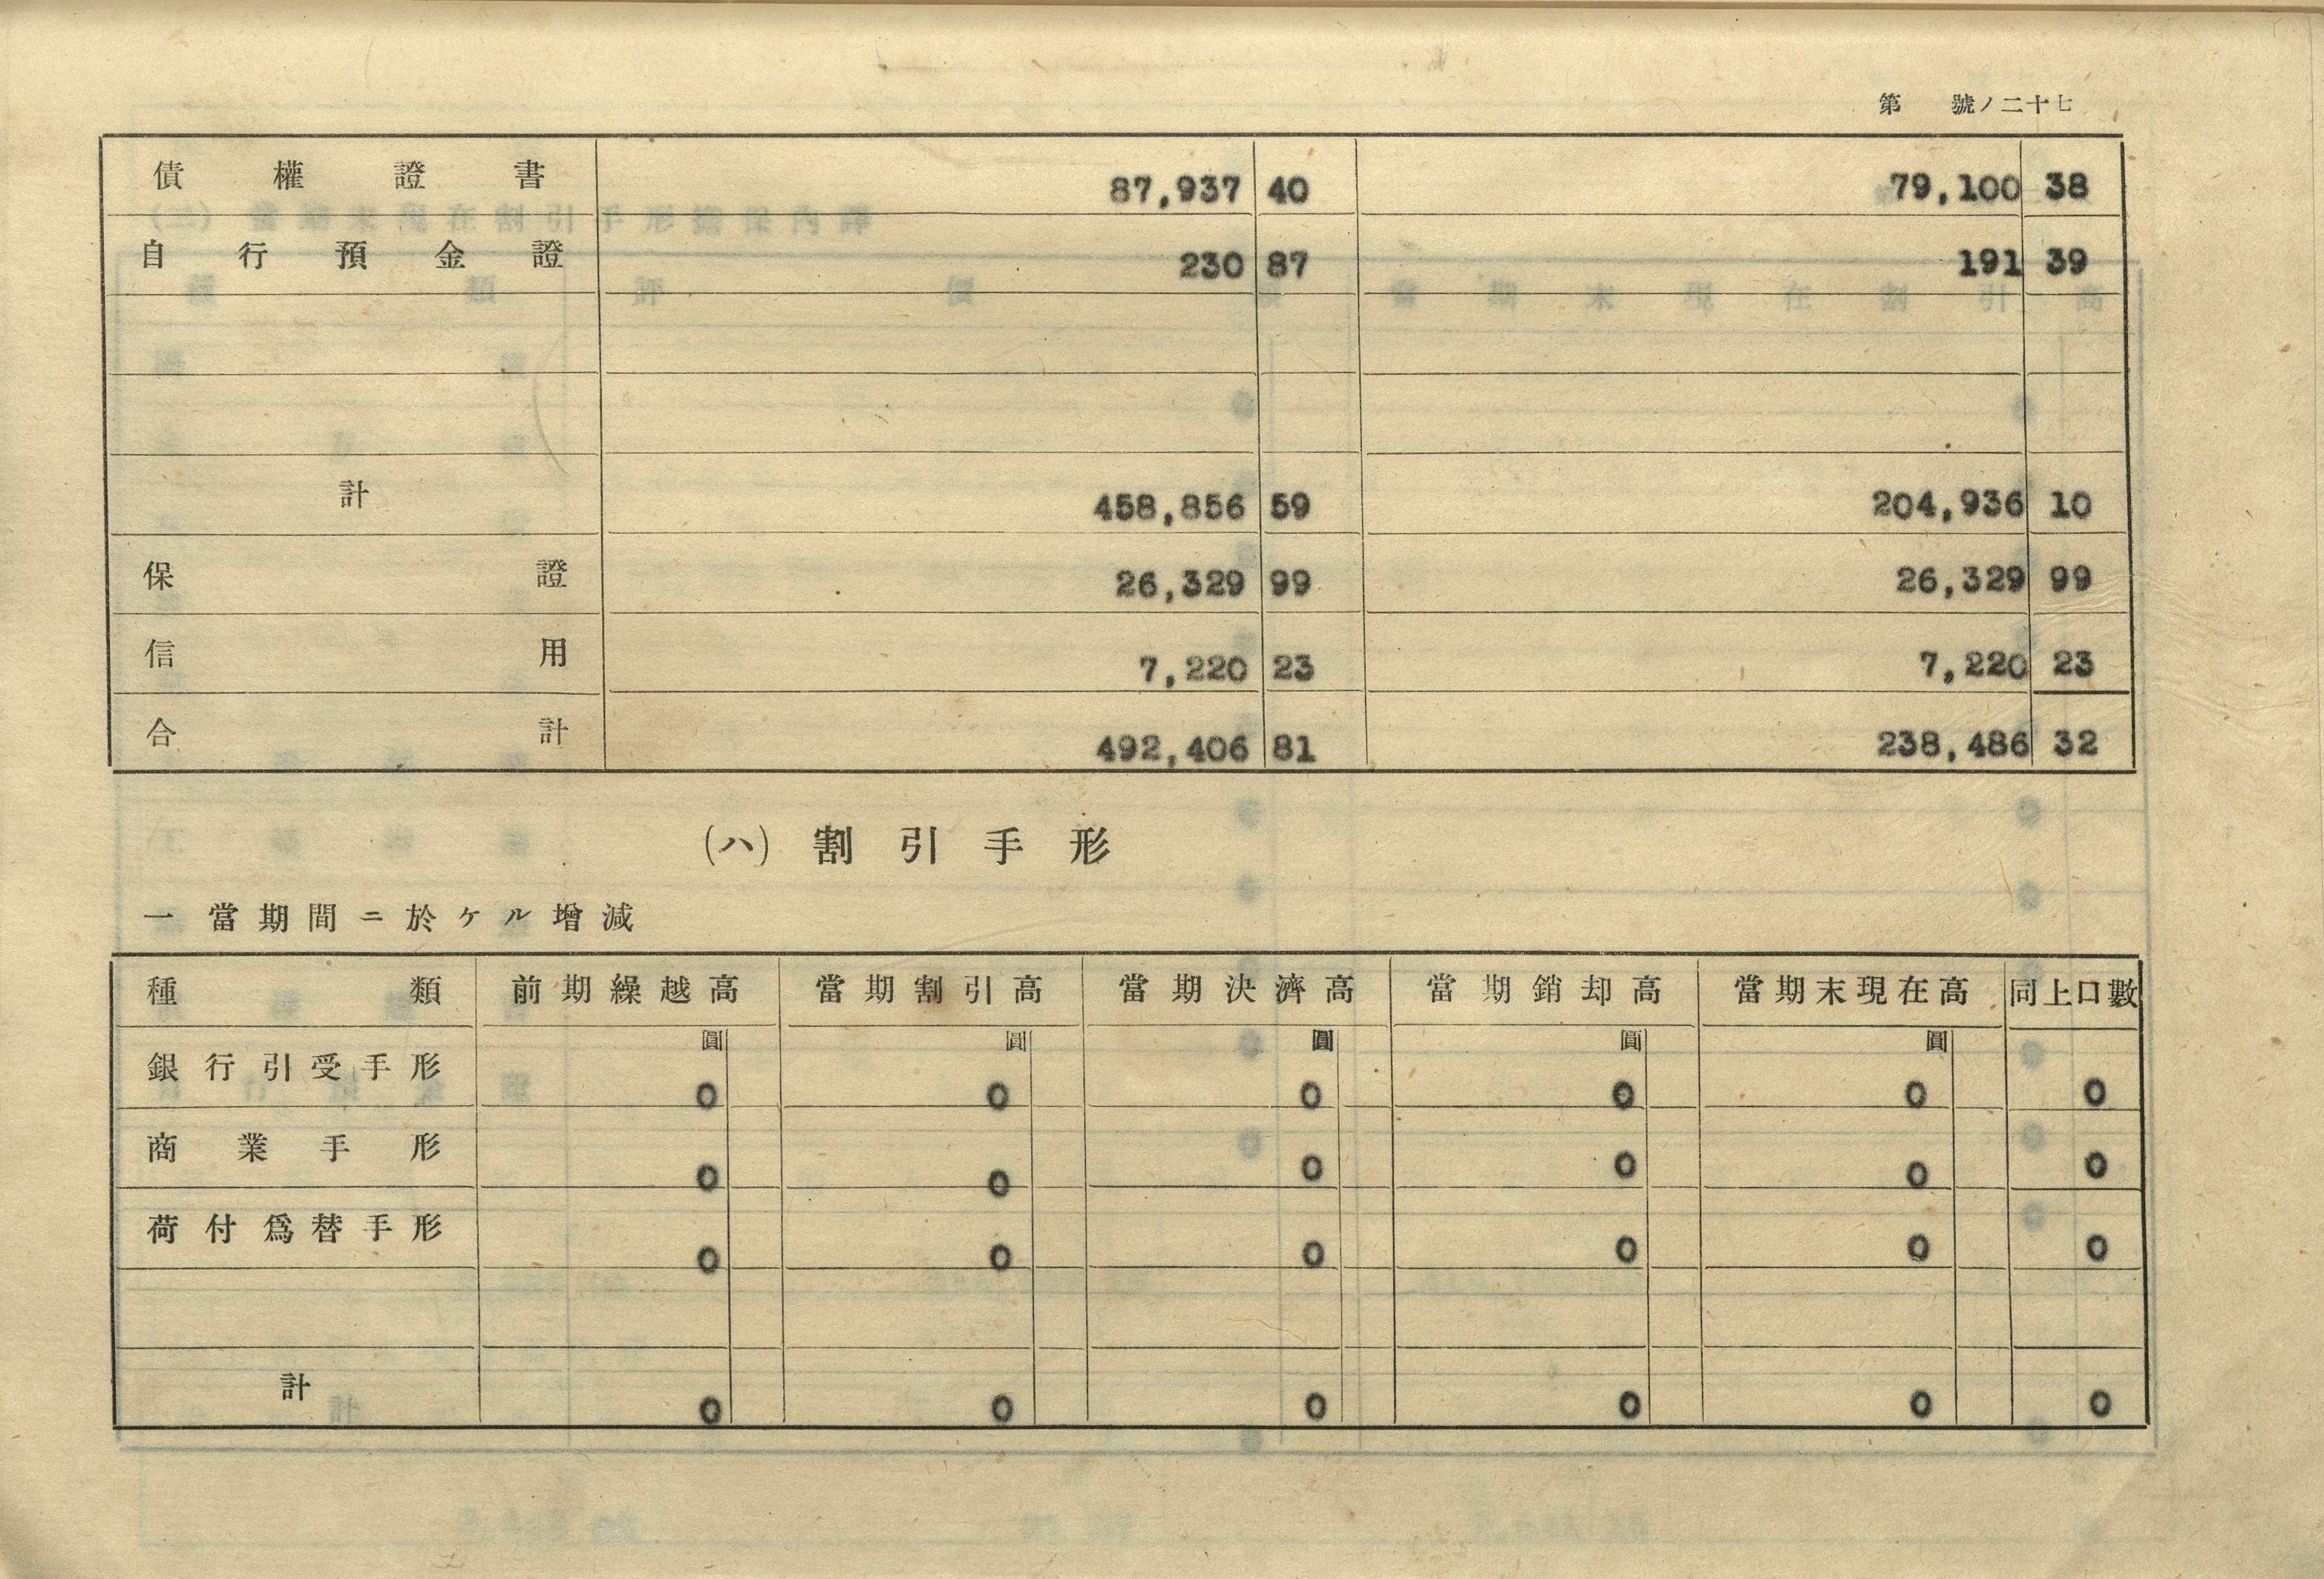 第 號ノ二十七
債權證書 87,937 40 79,100 38
自行預金證 230 87 191 39
計 458,856 59 204,936 10
保證 26,329 99 26,329 99
信用 7,220 23 7,220 23
合計 492,406 81 238,486 32
(ハ) 割引手形
一 當期間ニ於ケル增減
種類 前期繰越高 當期割引高 當期決濟高 當期銷却高 當期末現在高 同上口數
圓 圓 圓 圓 圓
銀行引受手形 0 0 0 0 0 0
商業手形 0 0 0 0 0 0
荷付爲替手形 0 0 0 0 0 0
計 0 0 0 0 0 0